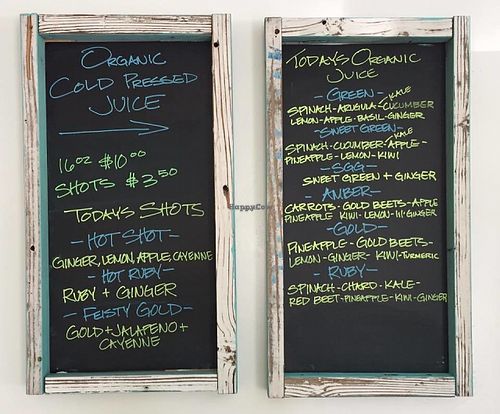 Organic
Cold Pressed
Juice
16oz $10.00
Shots $3.50
Todays Shots
-Hot Shot-
Ginger, Lemon, Apple, Cayenne
-Hot Ruby-
Ruby + Ginger
-Feisty Gold-
Gold + Jalapeno +
Cayenne
Todays Organic
Juice
-Green-
Kale
Spinach-Arugula-Cucumber
Lemon-Apple-Basil-Ginger
-Sweet Green-
Kale
Spinach-Cucumber-Apple-
Pineapple-Lemon-Kiwi
-SGG-
Sweet Green + Ginger
-Amber-
Carrots-Gold Beets-Apple
Pineapple Kiwi-Lemon-Ginger
-Gold-
Pineapple-Gold Beets-
Lemon-Ginger-Kiwi-Turmeric
-Ruby-
Spinach-Chard-Kale-
Red Beet-Pineapple-Kiwi-Ginger
HappyCow